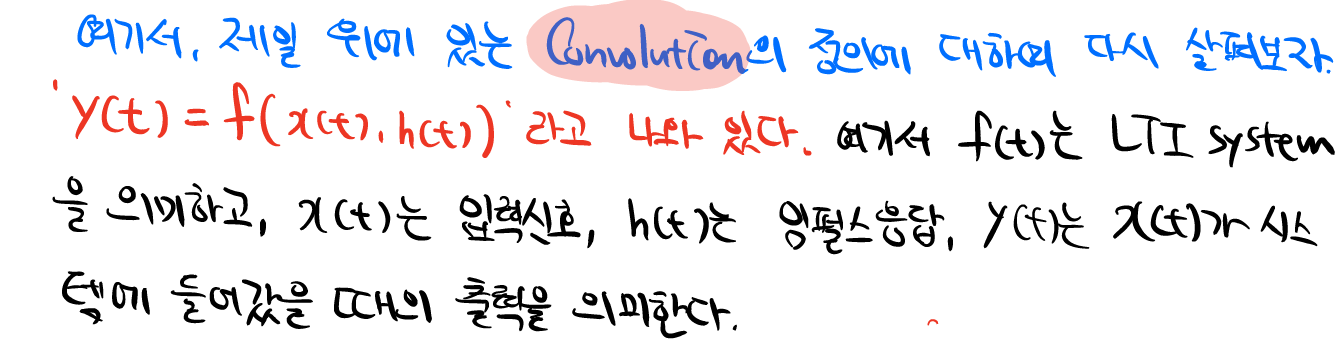 여기서, 제일 위에 있는 Convolution의 정의에 대하여 다시 살펴보자.
'y(t) = f(x(t), h(t))' 라고 나와 있다. 여기서 f(t)는 LTI system
을 의미하고, x(t)는 입력신호, h(t)는 임펄스응답, y(t)는 x(t)가 시스
템에 들어갔을 때의 출력을 의미한다.